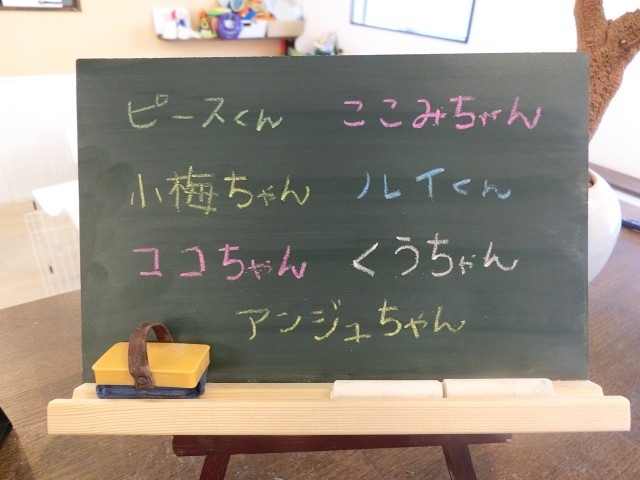 ピースくん ここみちゃん
小梅ちゃん ルイくん
ココちゃん くうちゃん
アンジュちゃん